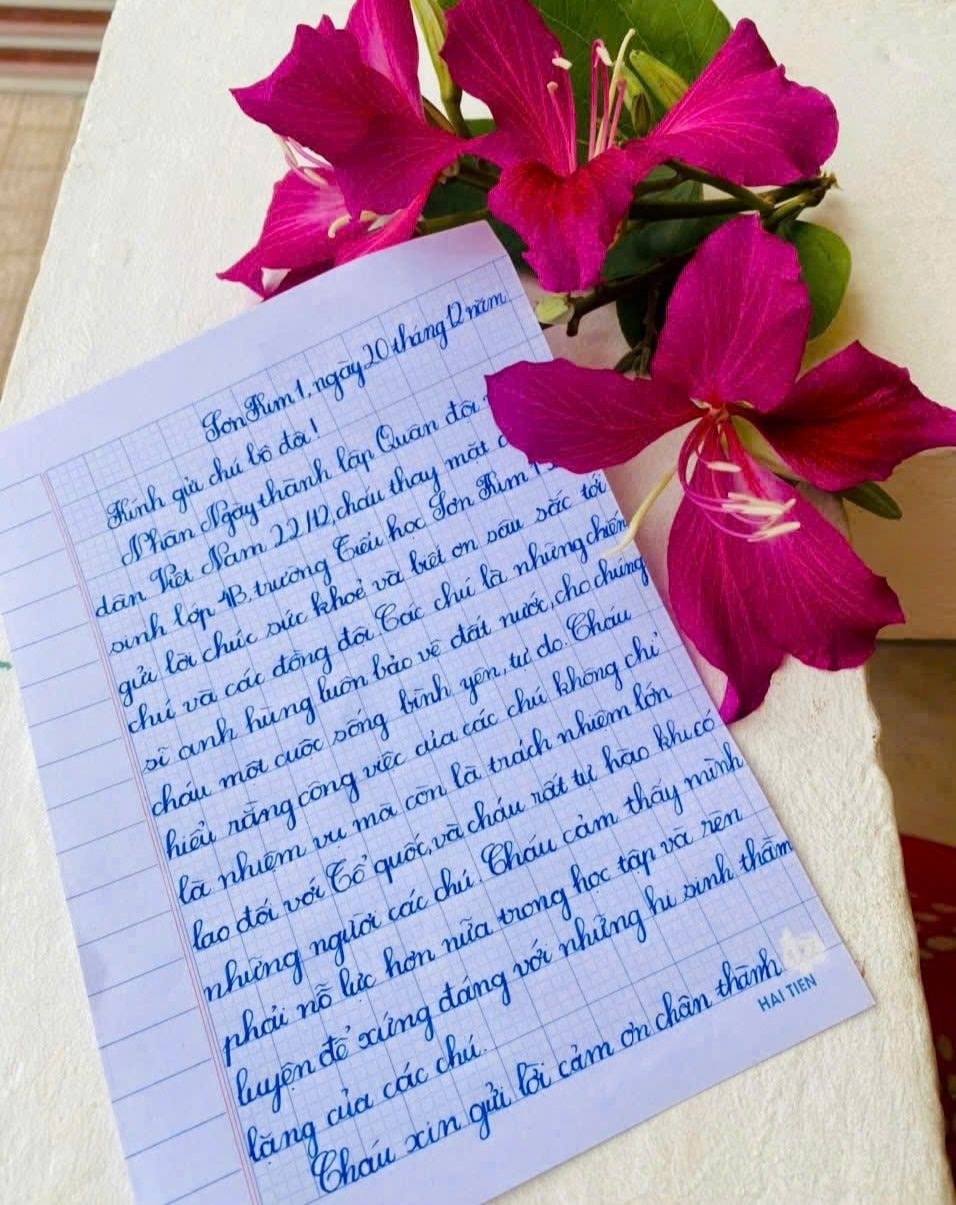 Sơn Kim 1, ngày 20 tháng 12 năm
Kính gửi chú bộ đội!
Nhân Ngày thành lập Quân đội
dân Việt Nam 22/12, cháu thay mặt
sinh lớp 4B, trường Tiểu học Sơn Kim 1
gửi lời chúc sức khoẻ và biết ơn sâu sắc tới
chú và các đồng đội. Các chú là những chiến
sĩ anh hùng luôn bảo vệ đất nước, cho chúng
cháu một cuộc sống bình yên, tự do. Cháu
hiểu rằng công việc của các chú không chỉ
là nhiệm vụ mà còn là trách nhiệm lớn
lao đối với Tổ quốc, và cháu rất tự hào khi có
những người các chú. Cháu cảm thấy mình
phải nỗ lực hơn nữa trong học tập và rèn
luyện để xứng đáng với những hi sinh thầm
lặng của các chú.
Cháu xin gửi lời cảm ơn chân thành
HAI TIEN